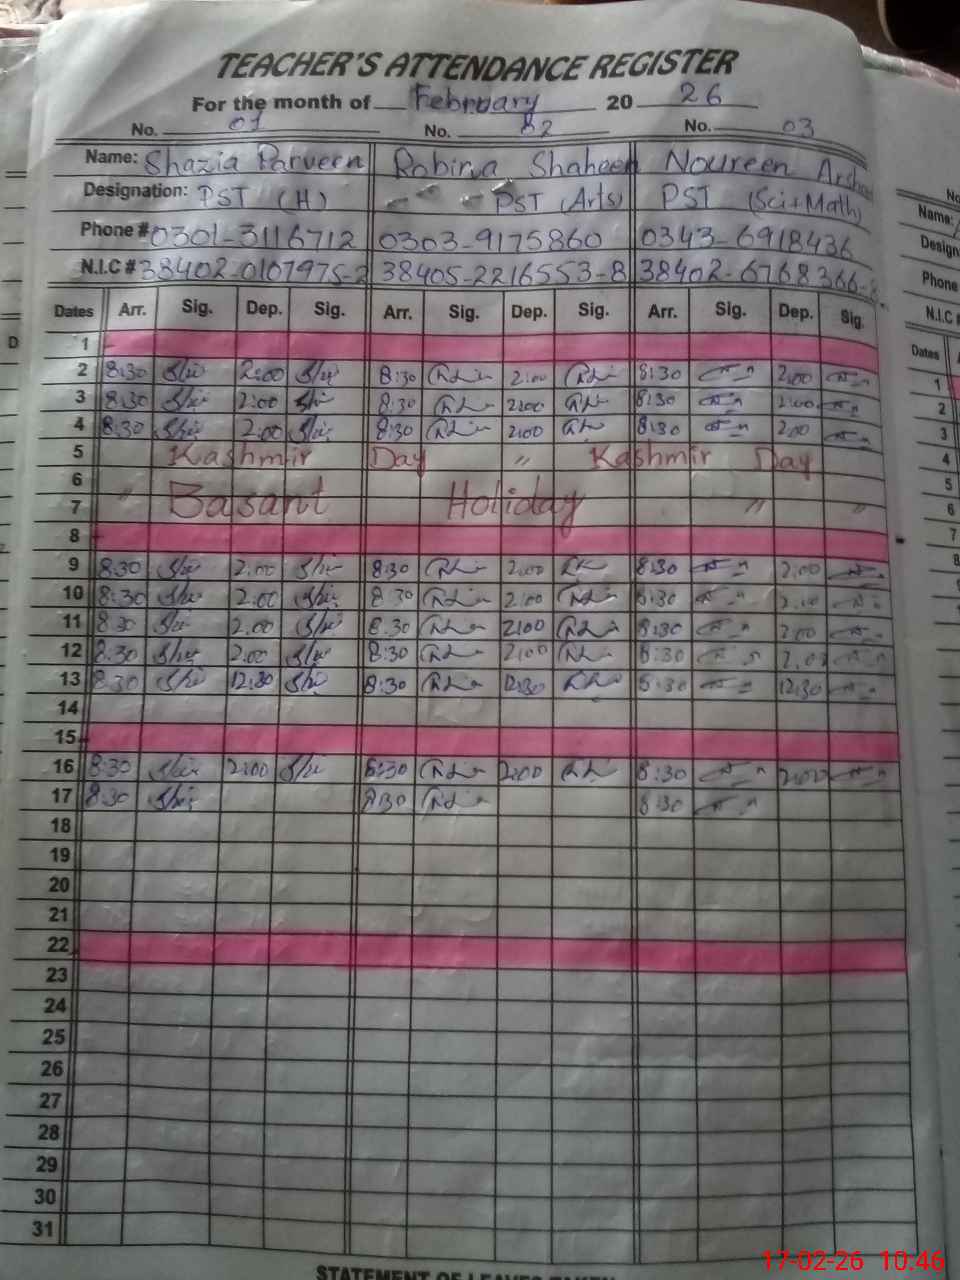 TEACHER'S ATTENDANCE REGISTER
For the month of February 20 26
No. 01 No. 02 No. 03
Name: Shazia Parveen Robina Shaheen Noureen Arsha
Designation: PST (H) PST (Arts) PST (Sci+Math)
Phone # 0301-3116712 0303-9175860 0343-6918436
N.I.C # 38402-0107975-2 38405-2216553-8 38402-6768366-
Dates Arr. Sig. Dep. Sig. Arr. Sig. Dep. Sig. Arr. Sig. Dep. Sig.
1
2 8:30 2:00 8:30 2:00 8:30 2:00
3 8:30 2:00 8:30 2:00 8:30 2:00
4 8:30 2:00 8:30 2:00 8:30 2:00
5 Kashmir Day " Kashmir Day
6
7 " Basant Holiday " "
8
9 8:30 2:00 8:30 2:00 8:30 2:00
10 8:30 2:00 8:30 2:00 8:30 2:00
11 8:30 2.00 8:30 2:00 8:30 2:00
12 8:30 2:00 8:30 2:00 8:30 2:00
13 8:30 12:30 8:30 12:30 8:30 12:30
14
15
16 8:30 2:00 8:30 2:00 8:30 2:00
17 8:30 8:30 8:30
18
19
20
21
22
23
24
25
26
27
28
29
30
31
STATEMENT OF LEAVES TAKEN
No
Name:
Design
Phone
N.I.C #
Dates
1
2
3
4
5
6
7
8
9
D
17-02-26 10:46